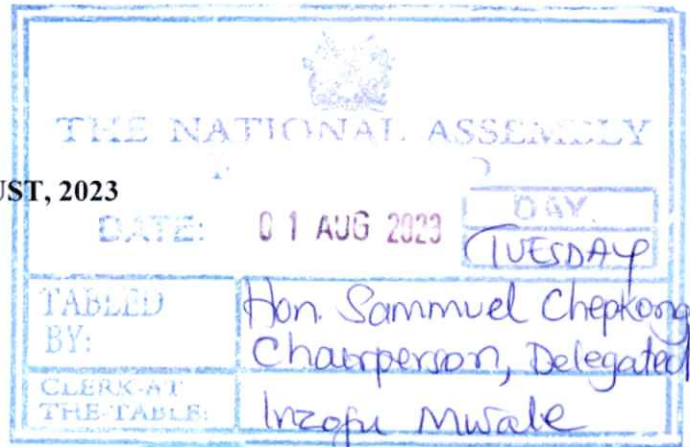 THE NATIONAL ASSEMBLY
UST, 2023
DATE: 01 AUG 2023 DAY.
TUESDAY
TABLED BY: Hon. Sammuel Chepkong
Chairperson, Delegated
CLERK-AT THE-TABLE: Inzofu Mwale